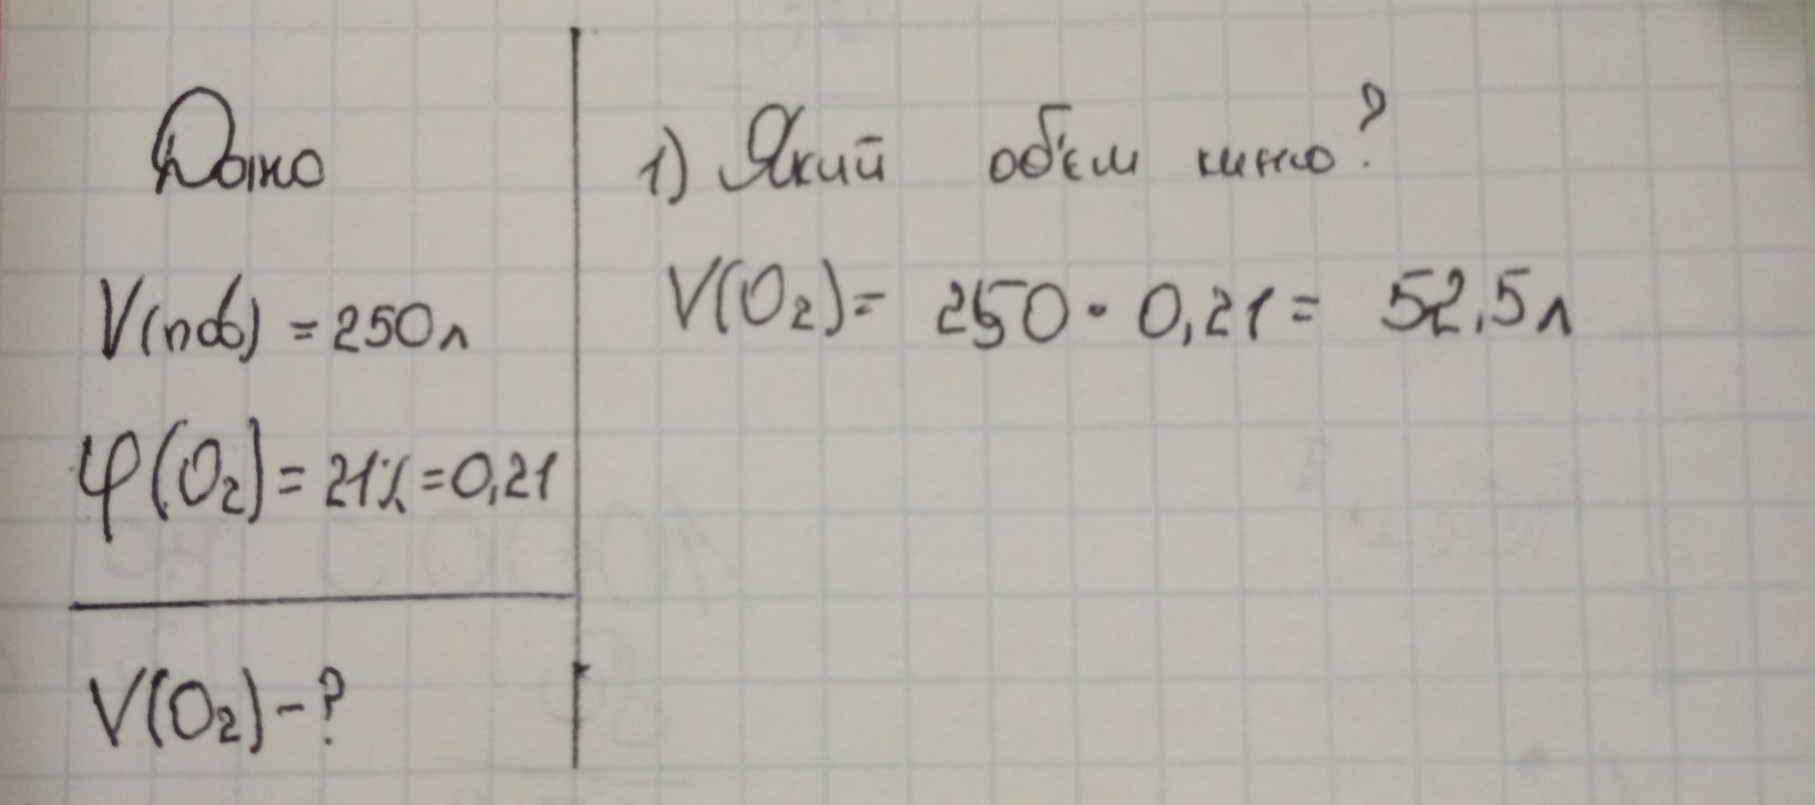 Дано
V(пов) = 250л
φ(O₂) = 21% = 0,21
V(O₂) - ?
1) Який об'єм кисню?
V(O₂) = 250 · 0,21 = 52,5л